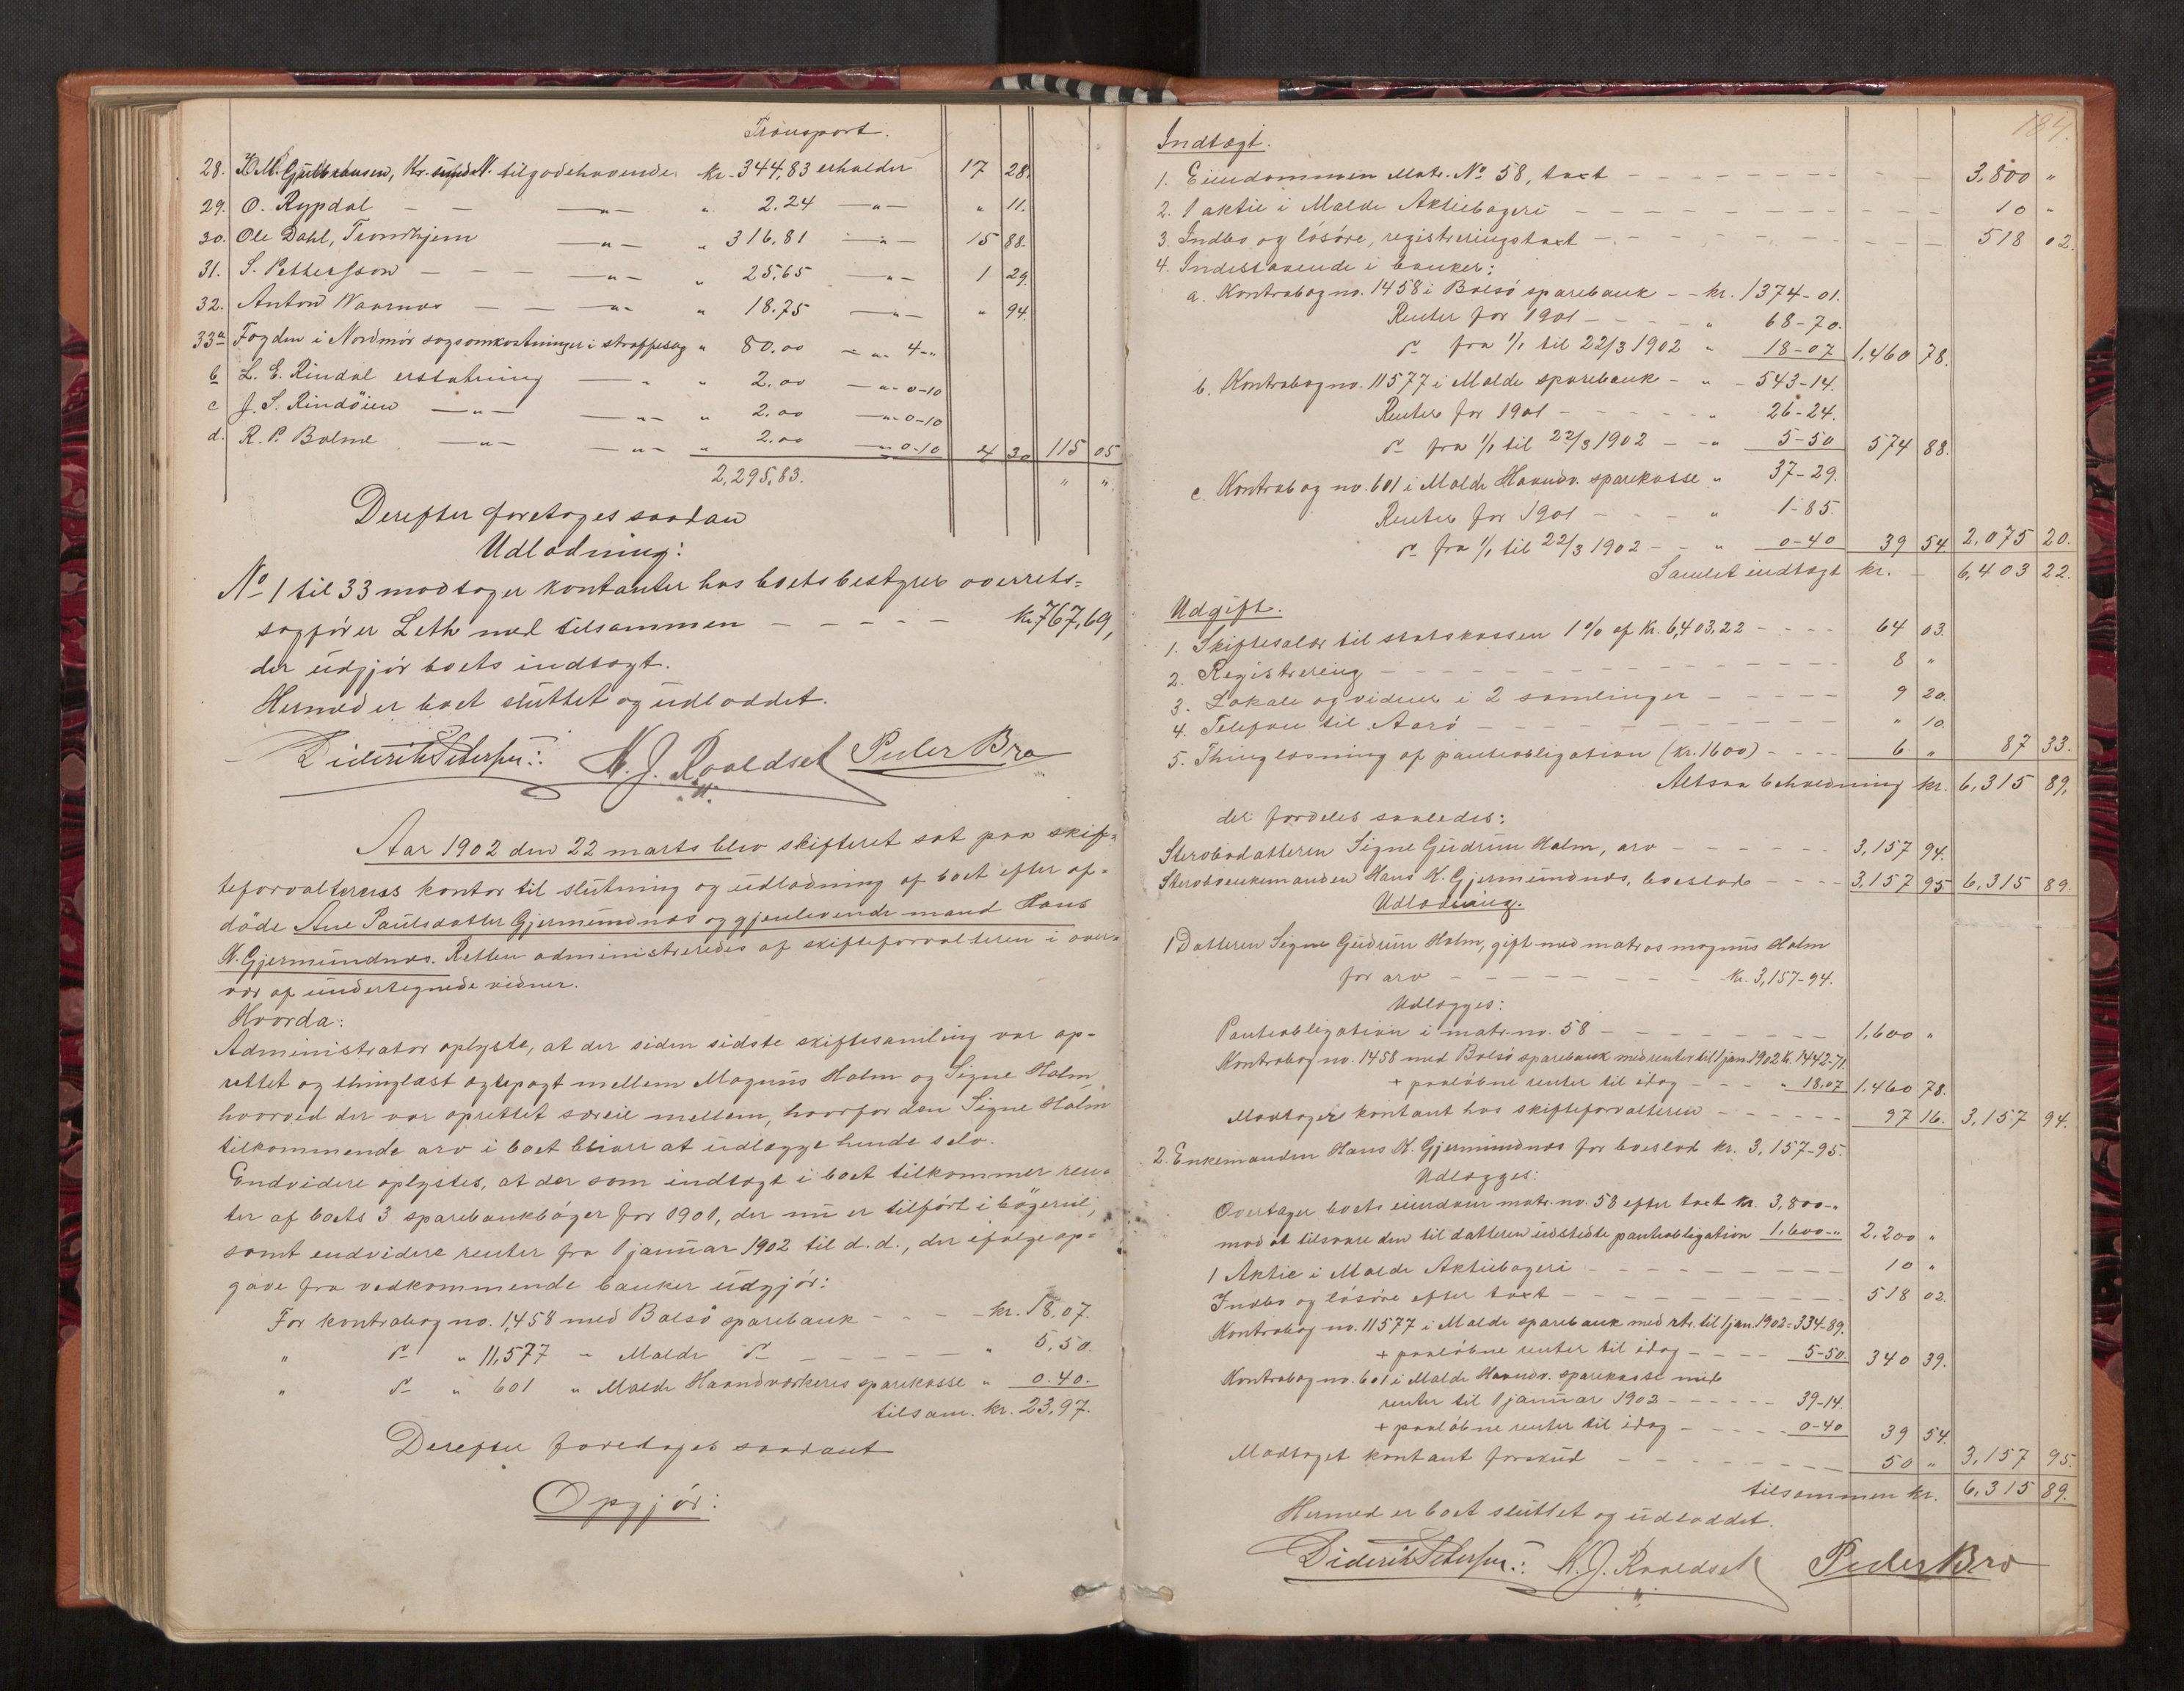 Transport.
28. Kr. sund N. tilgodehavende kr. 344,83 erholder 17 28.
29. O. Rypdal — — —"— " 2.24 —"— " 11.
30. Ole Dahl, Trondhjem —"— " 316,81 —"— 15 88.
31. S. Pettersson — — — —"— " 25,65 —"— 1 29.
32. Anton — — —"— " 18.75 —"— " 94.
33a Fogden i Nordmør sagsomkostninger i straffesag " 80,00 —"— 4-"
b L. E. Rindal erstatning —"— " 2,00 —"— 0-10
c J. S. Rindøien —"— —"— " 2.00 —"— 0-10
d. R. P. Bolme —"— —"— " 2.00 —"— 0-10 4 30 115 05
2,295,83. " "
Derefter foretoges saadan
Udlodning:
No 1 til 33 modtager kontanter hos boets bestyrer overrets-
sagfører Leth med tilsammen — — — — — kr. 767,69,
der udgjør boets indtægt.
Hermed er boet sluttet og udloddet.
Diderik Petersen: K. J. Roaldset Peder Bro
Aar 1902 den 22 marts blev skifteret sat paa skif-
teforvalterens kontor til slutning og udlodning af boet efter af-
døde Ane Paulsdatter Gjermundnæs og gjenlevende mand Hans
K. Gjermundnæs. Retten administreredes af skifteforvalteren i over-
vær af undertegnede vidner.
Hvorda:
Administrator oplyste, at der siden sidste skiftesamling var op-
rettet og thinglæst ægtepagt mellem Magnus Holm og Signe Holm
hvorved der var oprettet særeie mellem, hvorfor den Signe Holm
tilkommende arv i boet bliver at udlægge hende selv.
Endvidere oplystes, at der som indtægt i boet tilkommer ren-
ter af boets 3 sparebankbøger for 1901, der nu er tilført i bøgerne,
samt endvidere renter fra 1 januar 1902 til d.d., der ifølge op-
gave fra vedkommende banker udgjør:
For kontrabog no. 1,458 med Bolsø sparebank — — — kr. 18,07.
" do " 11,577 " Molde do — — — — — " 5,50.
" do " 601 " Molde Haandværkeres sparekasse " 0.40.
tilsam. kr. 23,97.
Derefter foretoges saadant
Opgjør:
184.
Indtægt.
1. Eiendommen Matr. No 58, taxt — — — — — — 3,800 "
2. 1 aktie i Molde Aktiebageri — — — — — — 10 "
3. Indbo og løsøre, registreringstaxt — — — — — — 518 02.
4. Indestaaende i banker:
a. Kontrabog no. 1458 i Bolsø sparebank — — kr. 1374-01.
Renter for 1901 — — — — " 68-70.
do fra 1/1 til 22/3 1902 " 18-07 1,460 78.
b. Kontrabog no. 11577 i Molde sparebank — " — 543-14.
Renter for 1901 — — — — — " 26-24.
do fra 1/1 til 22/3 1902 — — " 5-50 574 88.
c. Kontrabog no. 601 i Molde Haandv. sparekasse " 37-29.
Renter for 1901 — — — — " 1-85.
do fra 1/1 til 22/3 1902 — — " 0-40 39 54 2,075 20.
Samlet indtægt kr. — 6,403 22.
Udgift.
1. Skiftesalær til statskassen 1% af kr. 6,403,22 — — — — 64 03.
2. Registrering — — — — — — — 8 "
3. Lokale og vidner i 2 samlinger — — — — — 9 20.
4. Telefon til Aarø — — — — — — — " 10.
5. Thinglæsning af panteobligation (kr. 1600) — — — — 6 " 87 33.
Altsaa beholdning kr. 6,315 89,
der fordeles saaledes:
Stervbodatteren Signe Gudrun Holm, arv — — — — — — 3,157 94.
Stervboenkemanden Hans K. Gjermundnæs, boeslod — — — — 3,157 95 6,315 89.
Udlodning.
1 Datteren Signe Gudrun Holm, gift med matros Magnus Holm
for arv — — — — — — — kr. 3,157-94.
Udlægges:
Panteobligation i matr. no. 58 — — — — — — 1,600 "
Kontrabog no. 1458 med Bolsø sparebank med renter til 1 jan 1902 k. 1442-71.
+ paaløbne renter til idag — — — " 18,07 1,460 78.
Modtager kontant hos skifteforvalteren — — — — — — 97 16. 3,157 94.
2. Enkemanden Hans K. Gjermundnæs for boeslod kr. 3,157-95.
Udlægges:
Overtager boets eiendom matr. no. 58 efter taxt kr. 3,800-"
mod at tilsvare den til datteren udstedte panteobligation 1,600-" 2,200 "
1 Aktie i Molde Aktiebageri — — — — — — — 10 "
Indbo og løsøre efter taxt — — — — — — — 518 02.
Kontrabog no. 11577 i Molde sparebank med rtr. til 1 jan. 1902 = 334-89.
+ paaløbne renter til idag — — — — 5-50. 340 39.
Kontrabog no. 601 i Molde Haandv. sparekasse med
renter til 1 januar 1902 — — — — — — 39-14.
+ paaløbne renter til idag — — — — — 0-40 39 54.
Modtaget kontant forskud — — — — — — — 50 " 3,157 95.
tilsammen kr. 6,315 89.
Hermed er boet sluttet og udloddet.
Diderik Petersen: K. J. Roaldset Peder Bro